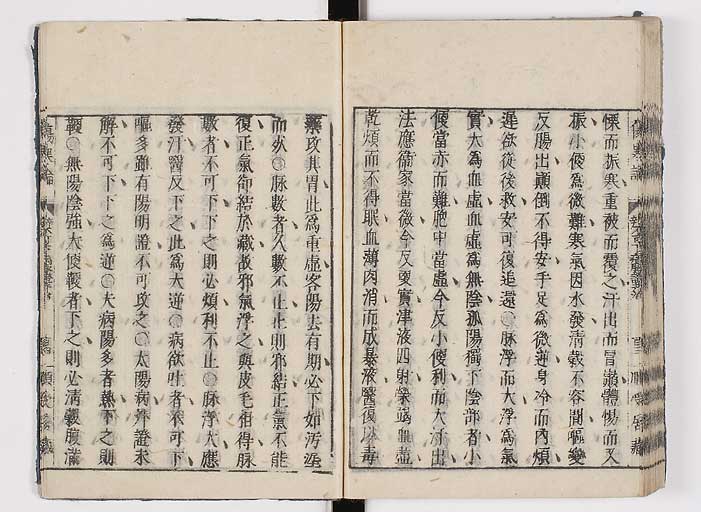 慄而振寒重被而覆之汗出而冒巔體惕而又
振小便為微難寒氣因水發清穀不容間嘔變
反腸出顛倒不得安手足為微逆身冷而內煩
遲欲從後救安可復追還○脉浮而大浮為氣
實大為血虛血虛為無陰孤陽獨下陰部者小
便當赤而難胞中當虛今反小便利而大汗出
法應衛家當微今反更實津液四射榮竭血盡
乾煩而不得眠血薄肉消而成暴液醫復以毒
藥攻其胃此為重虛客陽去有期必下如汚泥
而死○脉數者久數不止止則邪結正氣不能
復正氣卻結於藏故邪氣浮之與皮毛相得脉
數者不可下下之則必煩利不止○脉浮大應
發汗醫反下之此為大逆○病欲吐者不可下
嘔多雖有陽明證不可攻之○太陽病外證未
解不可下下之為逆○大病陽多者熱下之則
鞕○無陽陰強大便鞕者下之則必清穀腹滿
傷寒論